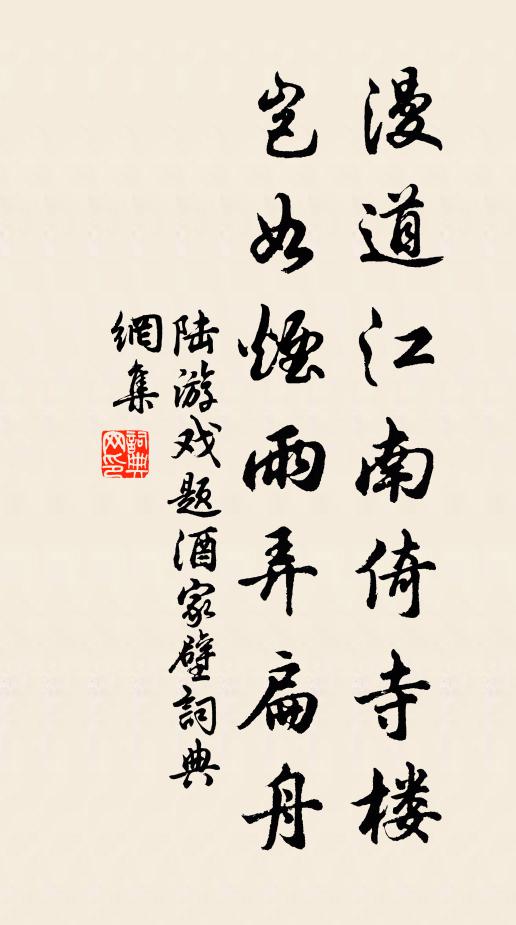 漫道江南倚寺楼
岂如煙雨弄扁舟
陆游戏题酒家壁詞典
網集
詞典
网印